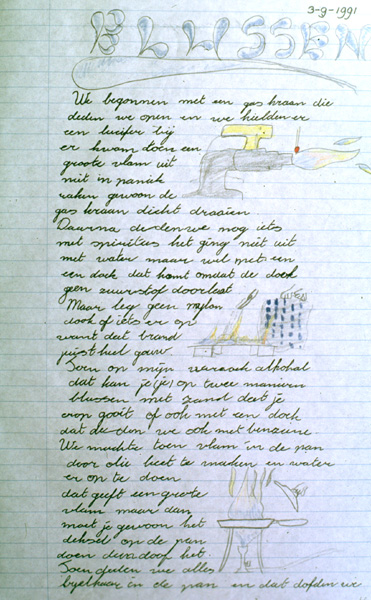 3-9-1991
BLUSSEN
We begonnen met een gas kraan die
deden we open en we hielden er
een lucifer bij
er kwam toen een
groote vlam uit
niet in paniek
raken gewoon de
gas kraan dicht draaien
Daarna deden we nog iets
met spiritus het ging niet uit
met water maar wel met een
een doek dat komt omdat de doek
geen zuurstof doorlaat
Maar leg geen nylon
doek of iets er op
want dat brand
juist heel gauw.
Toen op mijn alkohol
dat kan je (je) op twee manieren
blussen met zand dat je
erop gooit of ook met een doek
dat deden we ook met benzeine
We maakte toen vlam in de pan
door olie heet te maken en water
er op te doen
dat geeft een groote
vlam maar dan
moet je gewoon het
deksel op de pan
doen dan doof het.
Toen deden we alles
bijelkaar in de pan en dat dofden we